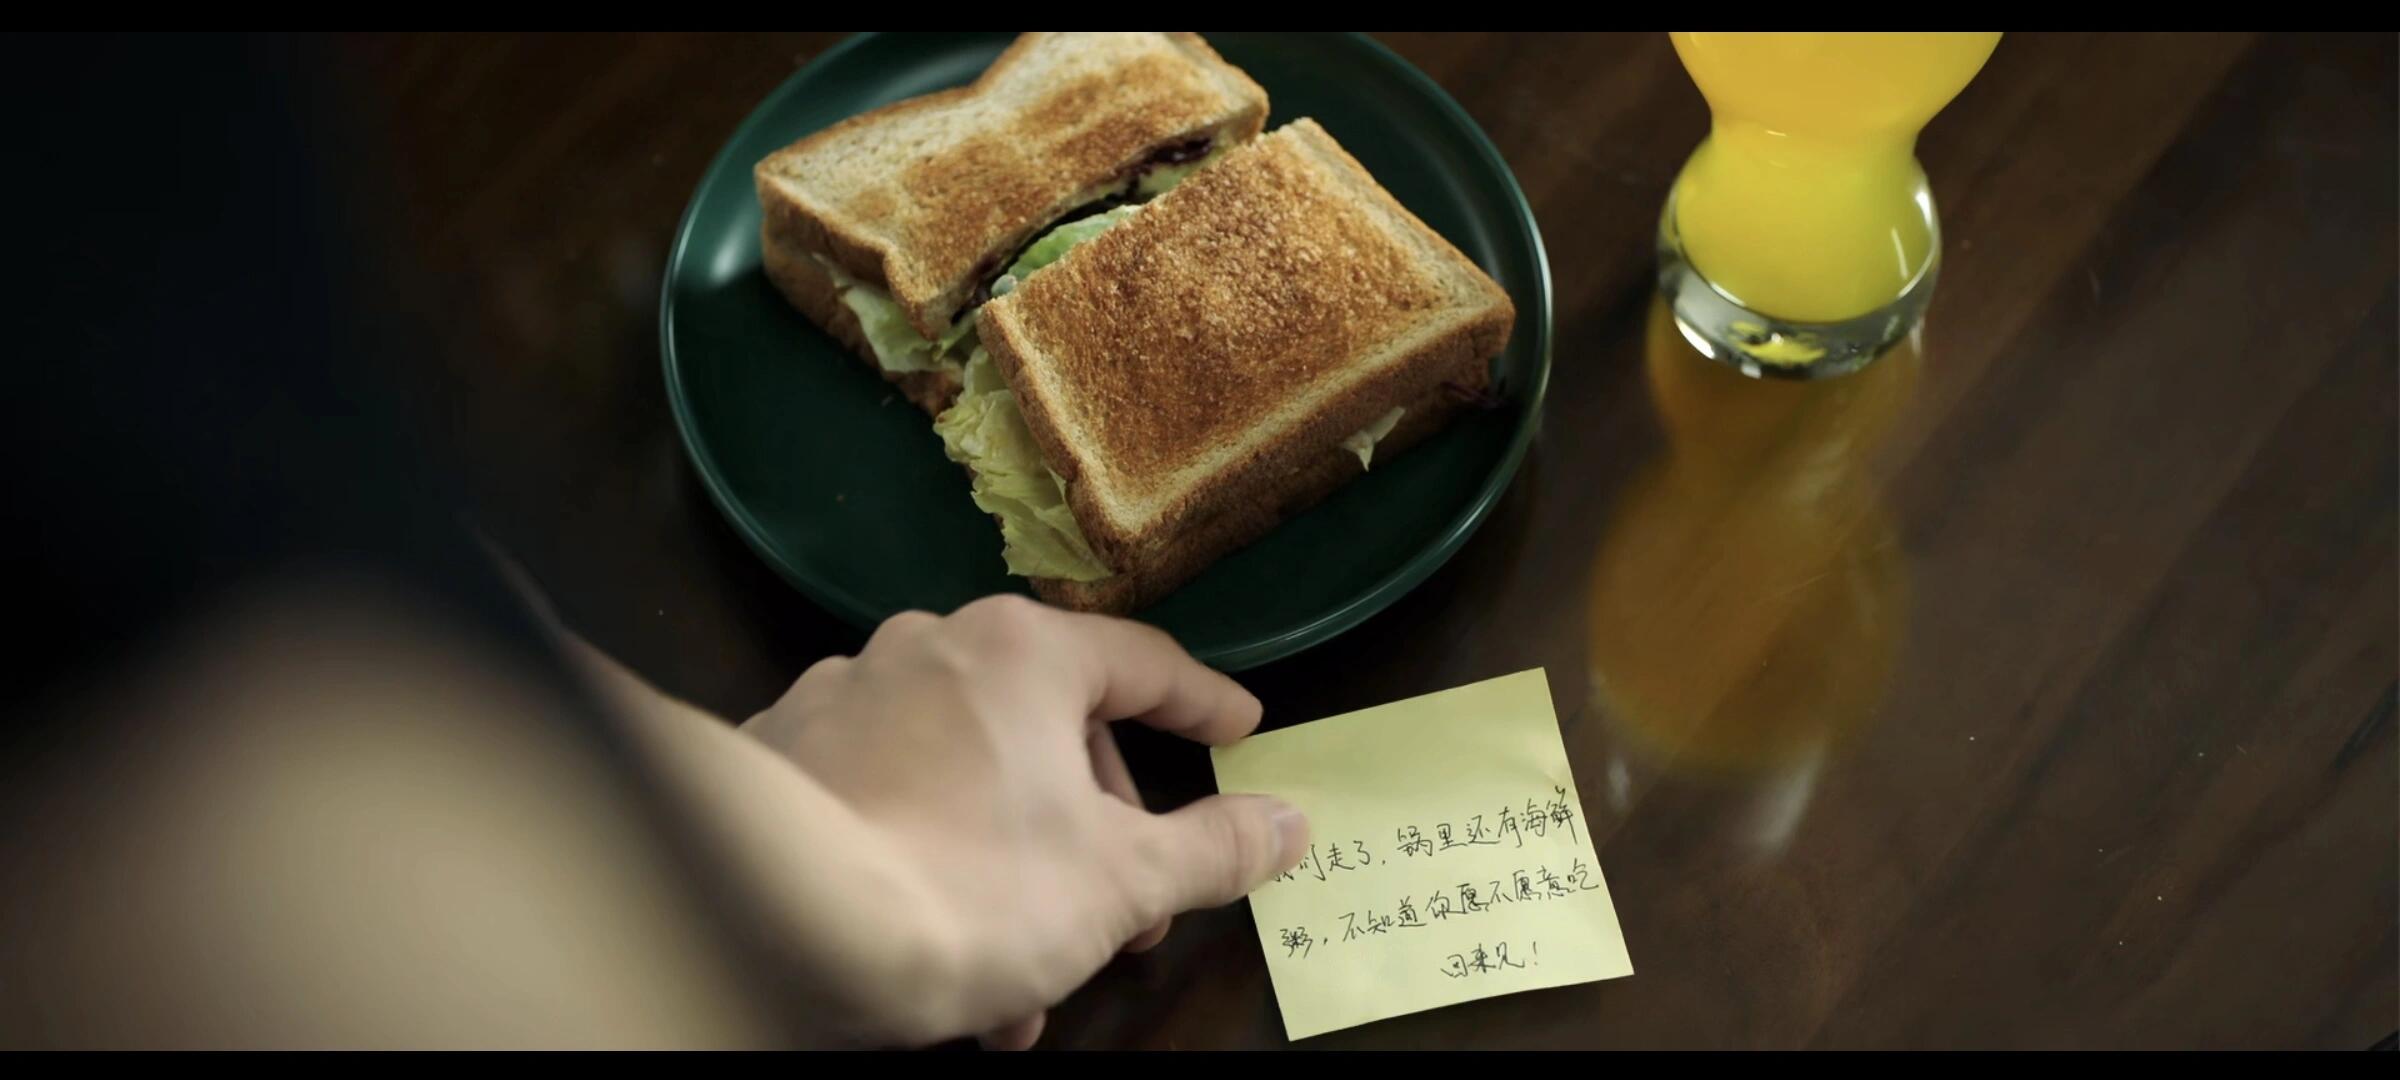 我们走了，锅里还有海鲜
粥，不知道你愿不愿意吃
回来见！